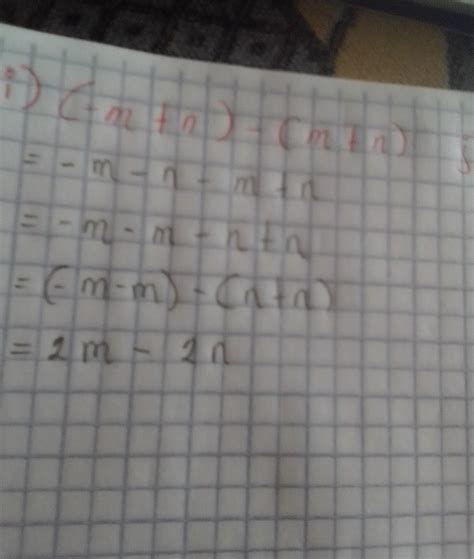 i) (-m+n)-(m+n)
= -m-n-m+n
= -m-m-n+n
= (-m-m)-(n+n)
= 2m-2n